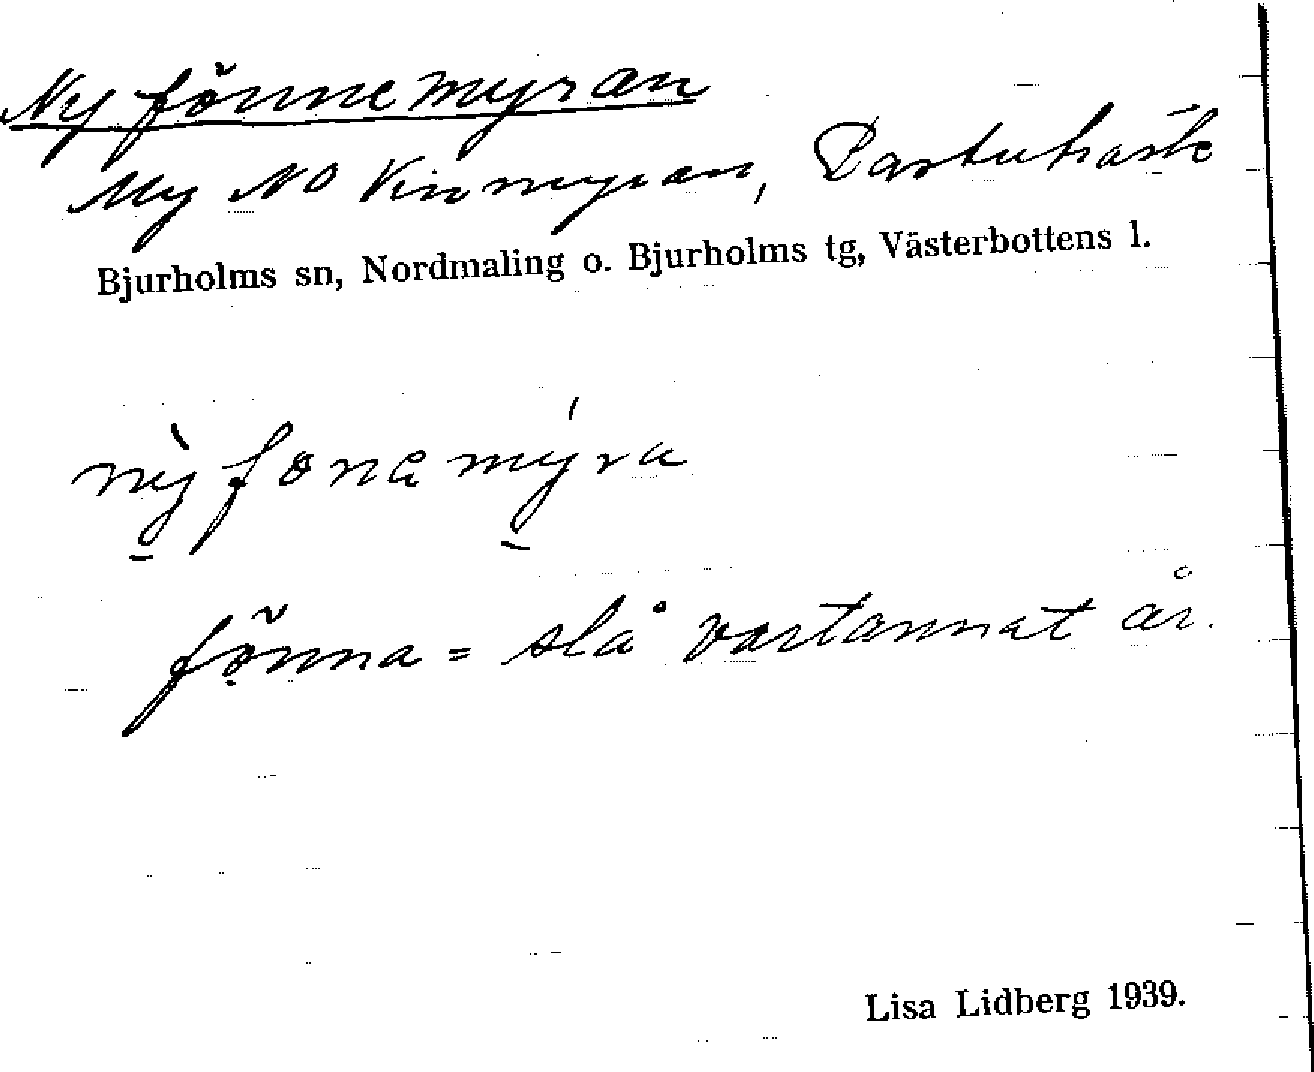 Nyfönnemyran
My NO Vinmyran, Bastuträsk
Bjurholms sn, Nordmaling o. Bjurholms tg, Västerbottens l.
nỳfonemýra
fönna = slå vartannat år.
Lisa Lidberg 1939.